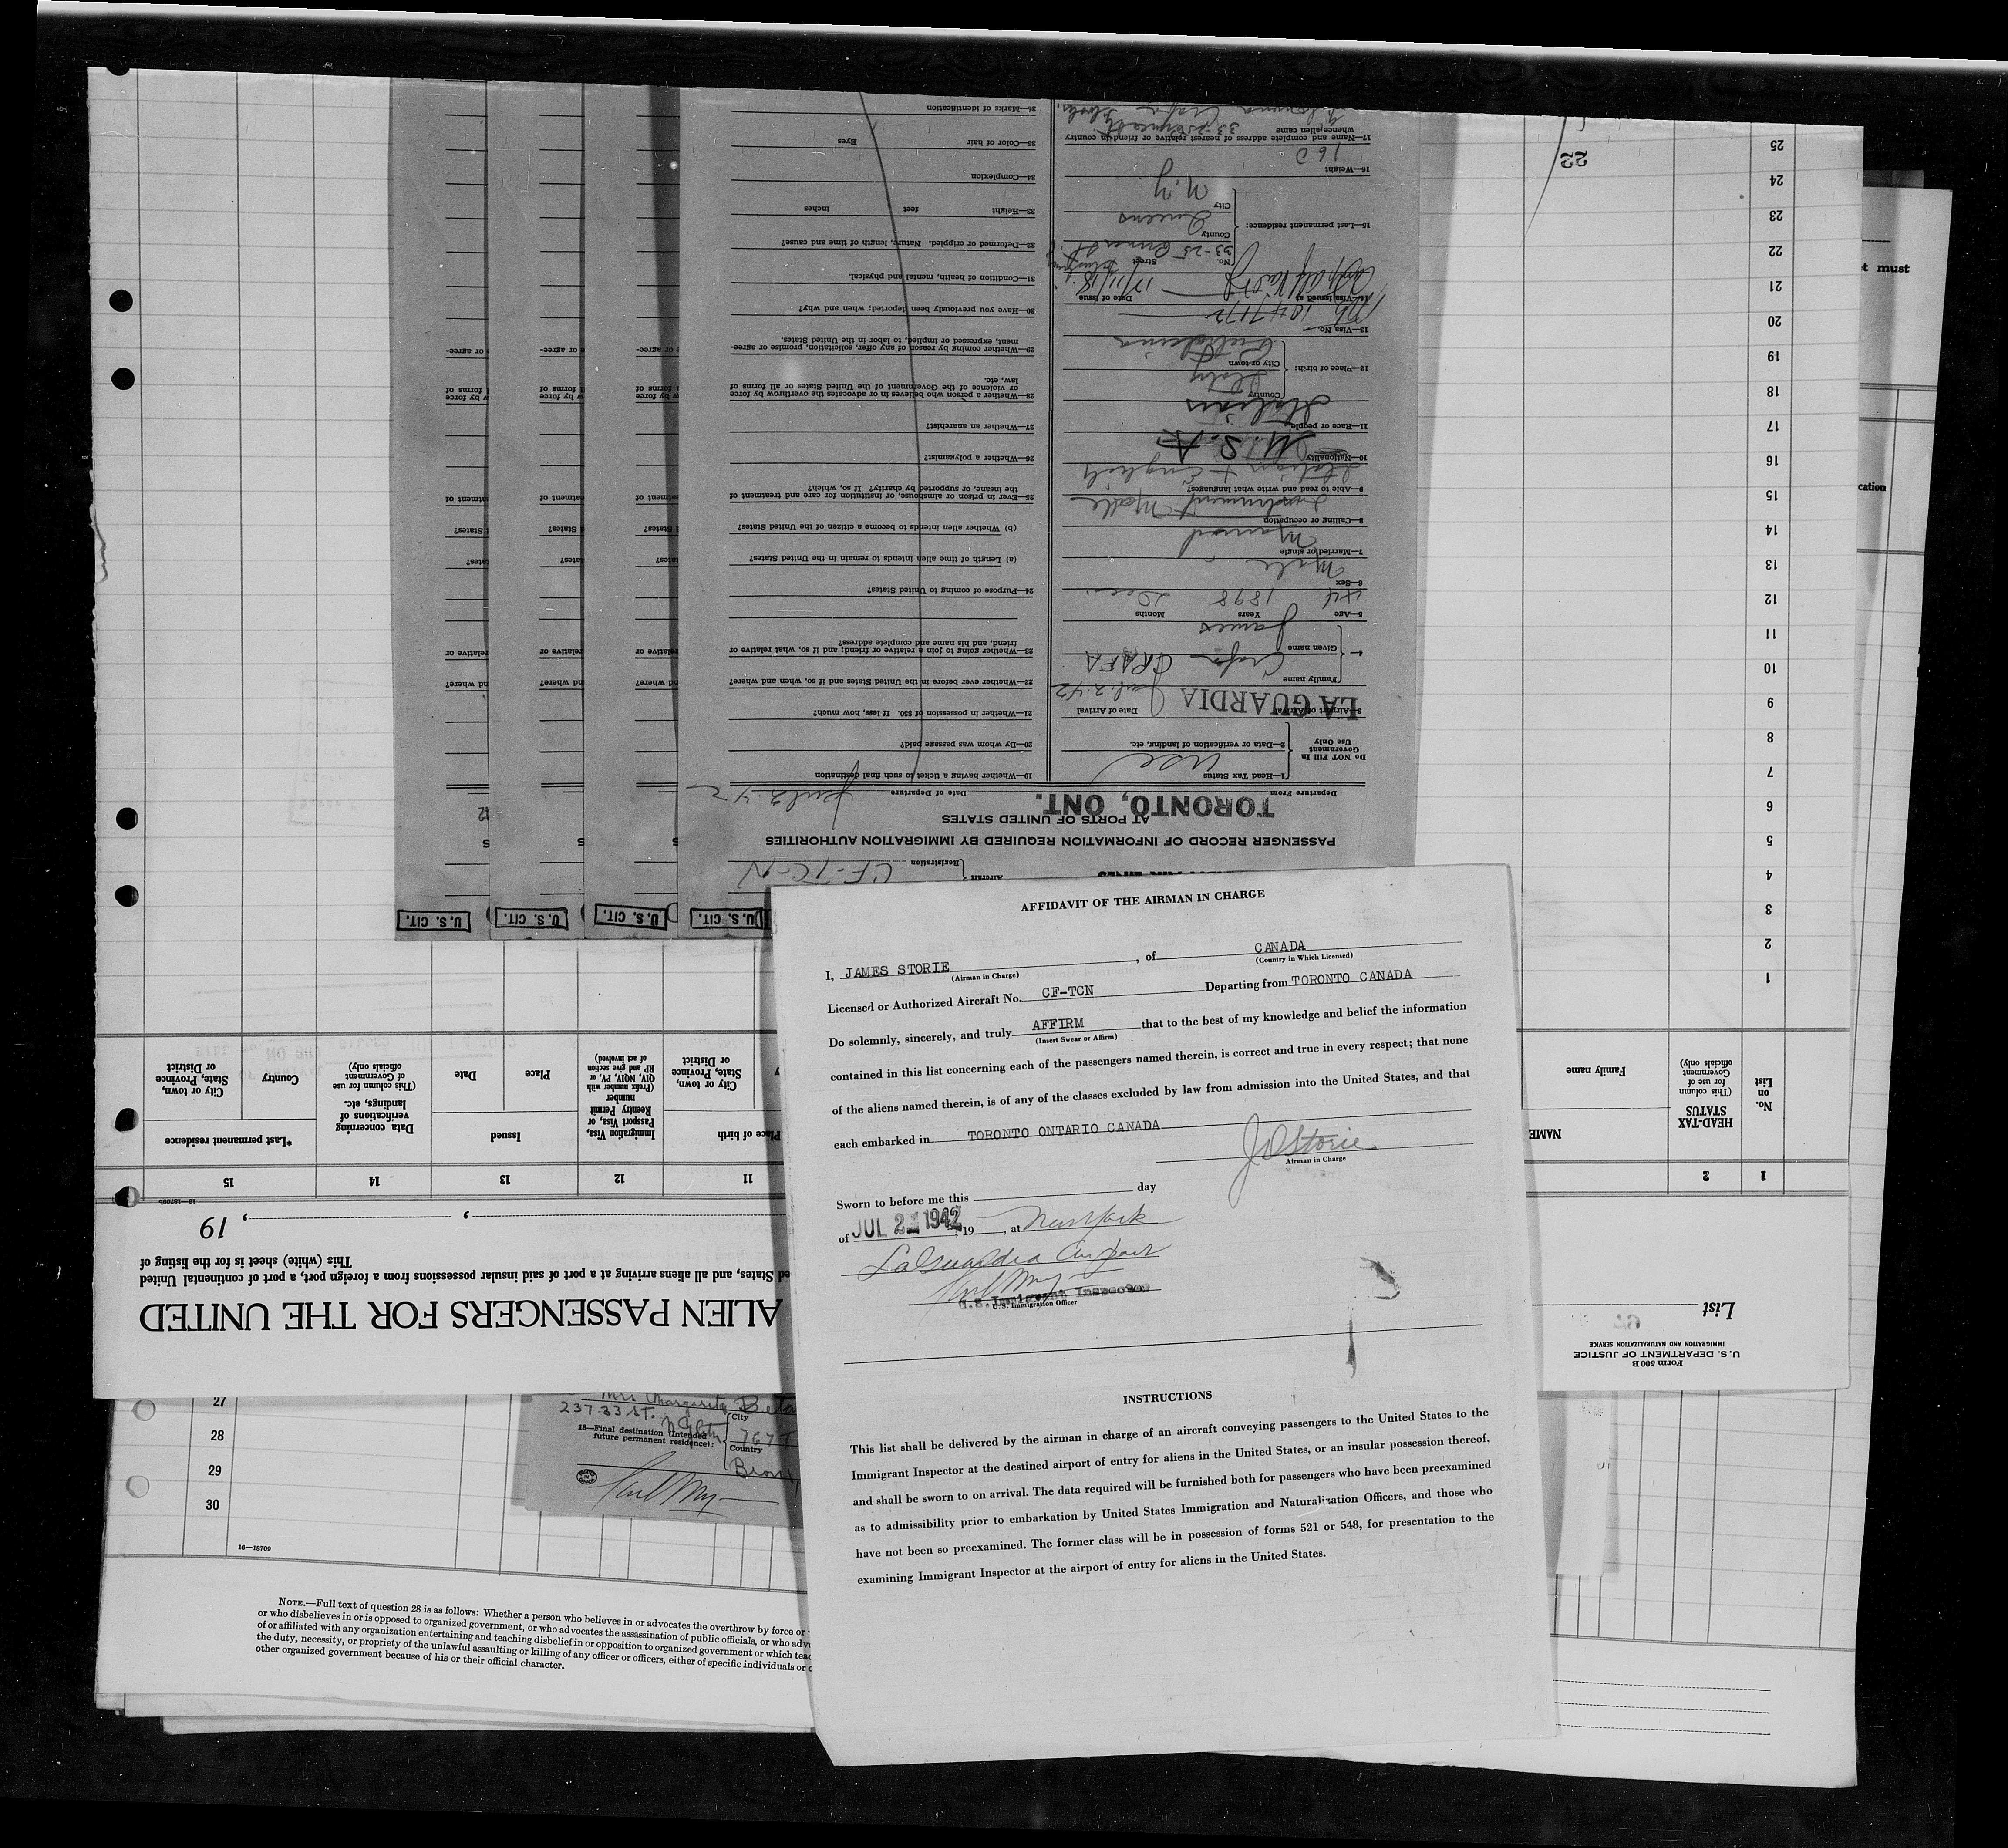 AFFIDAVIT OF THE AIRMAN IN CHARGE
I, JAMES STORIE, of CANADA
(Airman in Charge) (Country in Which Licensed)
Licensed or Authorized Aircraft No. CF-TCN Departing from TORONTO CANADA
Do solemnly, sincerely, and truly AFFIRM that to the best of my knowledge and belief the information
(Insert Swear or Affirm)
contained in this list concerning each of the passengers named therein, is correct and true in every respect; that none
of the aliens named therein, is of any of the classes excluded by law from admission into the United States, and that
each embarked in TORONTO ONTARIO CANADA
J Storie
Airman in Charge
Sworn to before me this day
of JUL 2 1942, 19, at New York
LaGuardia Airport
Karl May
U.S. Immigrant Inspector
U.S. Immigration Officer
INSTRUCTIONS
This list shall be delivered by the airman in charge of an aircraft conveying passengers to the United States to the
Immigrant Inspector at the destined airport of entry for aliens in the United States, or an insular possession thereof,
and shall be sworn to on arrival. The data required will be furnished both for passengers who have been preexamined
as to admissibility prior to embarkation by United States Immigration and Naturalization Officers, and those who
have not been so preexamined. The former class will be in possession of forms 521 or 548, for presentation to the
examining Immigrant Inspector at the airport of entry for aliens in the United States.
U.S. CIT.
U.S. CIT.
U.S. CIT.
U.S. CIT.
Aircraft Registration CF-TCN
PASSENGER RECORD OF INFORMATION REQUIRED BY IMMIGRATION AUTHORITIES
AT PORTS OF UNITED STATES
Departure From TORONTO, ONT. Date of Departure Jul 2-42
Do NOT Fill In Government Use Only
1—Head Tax Status USC
2—Data or verification of landing, etc.
3—Airport of Arrival LA GUARDIA Date of Arrival Jul. 2-42
4—Family name Crafa CRAFA
Given name James
5—Age 44 Years 1898 Months Dec.
6—Sex Male
7—Married or single Married
8—Calling or occupation Instrument Maker
9—Able to read and write what languages? Italian + English
10—Nationality U.S.A.
11—Race or people Italian
12—Place of birth: Country Italy
City or town
13—Visa No. 1047172
14—Visa issued at Date of issue
15—Last permanent residence: No. 33-25 Street
County Queens
City N.Y
16—Weight 160
17—Name and complete address of nearest relative or friend in country
whence alien came
19—Whether having a ticket to such final destination
20—By whom was passage paid?
21—Whether in possession of $50. If less, how much?
22—Whether ever before in the United States and if so, when and where?
23—Whether going to join a relative or friend; and if so, what relative or
friend, and his name and complete address?
24—Purpose of coming to United States?
(a) Length of time alien intends to remain in the United States?
(b) Whether alien intends to become a citizen of the United States?
25—Ever in prison or almshouse, or institution for care and treatment of
the insane, or supported by charity? If so, which?
26—Whether a polygamist?
27—Whether an anarchist?
28—Whether a person who believes in or advocates the overthrow by force
or violence of the Government of the United States or all forms of
law, etc.
29—Whether coming by reason of any offer, solicitation, promise or agree-
ment, expressed or implied, to labor in the United States.
30—Have you previously been deported; when and why?
31—Condition of health, mental and physical.
32—Deformed or crippled. Nature, length of time and cause?
33—Height feet inches
34—Complexion
35—Color of hair Eyes
36—Marks of identification
Form 500 B
U. S. DEPARTMENT OF JUSTICE
IMMIGRATION AND NATURALIZATION SERVICE
List
ALIEN PASSENGERS FOR THE UNITED
ed States, and all aliens arriving at a port of said insular possessions from a foreign port, a port of continental United
This (white) sheet is for the listing of
, 19
1 2 11 12 13 14 15
No. on List
HEAD-TAX STATUS
(This column for use of Government officials only)
NAME
Family name
Place of birth
City or town, State, Province or District
Immigration Visa, Passport Visa, or Reentry Permit number
(Prefix number with QIV, NQIV, PV, or RP and give section of act involved)
Issued
Place
Date
Data concerning verifications of landings, etc.
(This column for use of Government officials only)
*Last permanent residence
Country
City or town, State, Province or District
1
2
3
4
5
6
7
8
9
10
11
12
13
14
15
16
17
18
19
20
21
22
23
24
25
22
27
28
29
30
16—18709
Mrs Margarita
237 33 ST.
18—Final destination (Intended
future permanent residence):
City
Country
Karl May
NOTE.—Full text of question 28 is as follows: Whether a person who believes in or advocates the overthrow by force or
or who disbelieves in or is opposed to organized government, or who advocates the assassination of public officials, or who adv
of or affiliated with any organization entertaining and teaching disbelief in or opposition to organized government or which teac
the duty, necessity, or propriety of the unlawful assaulting or killing of any officer or officers, either of specific individuals or o
other organized government because of his or their official character.
t must
cation